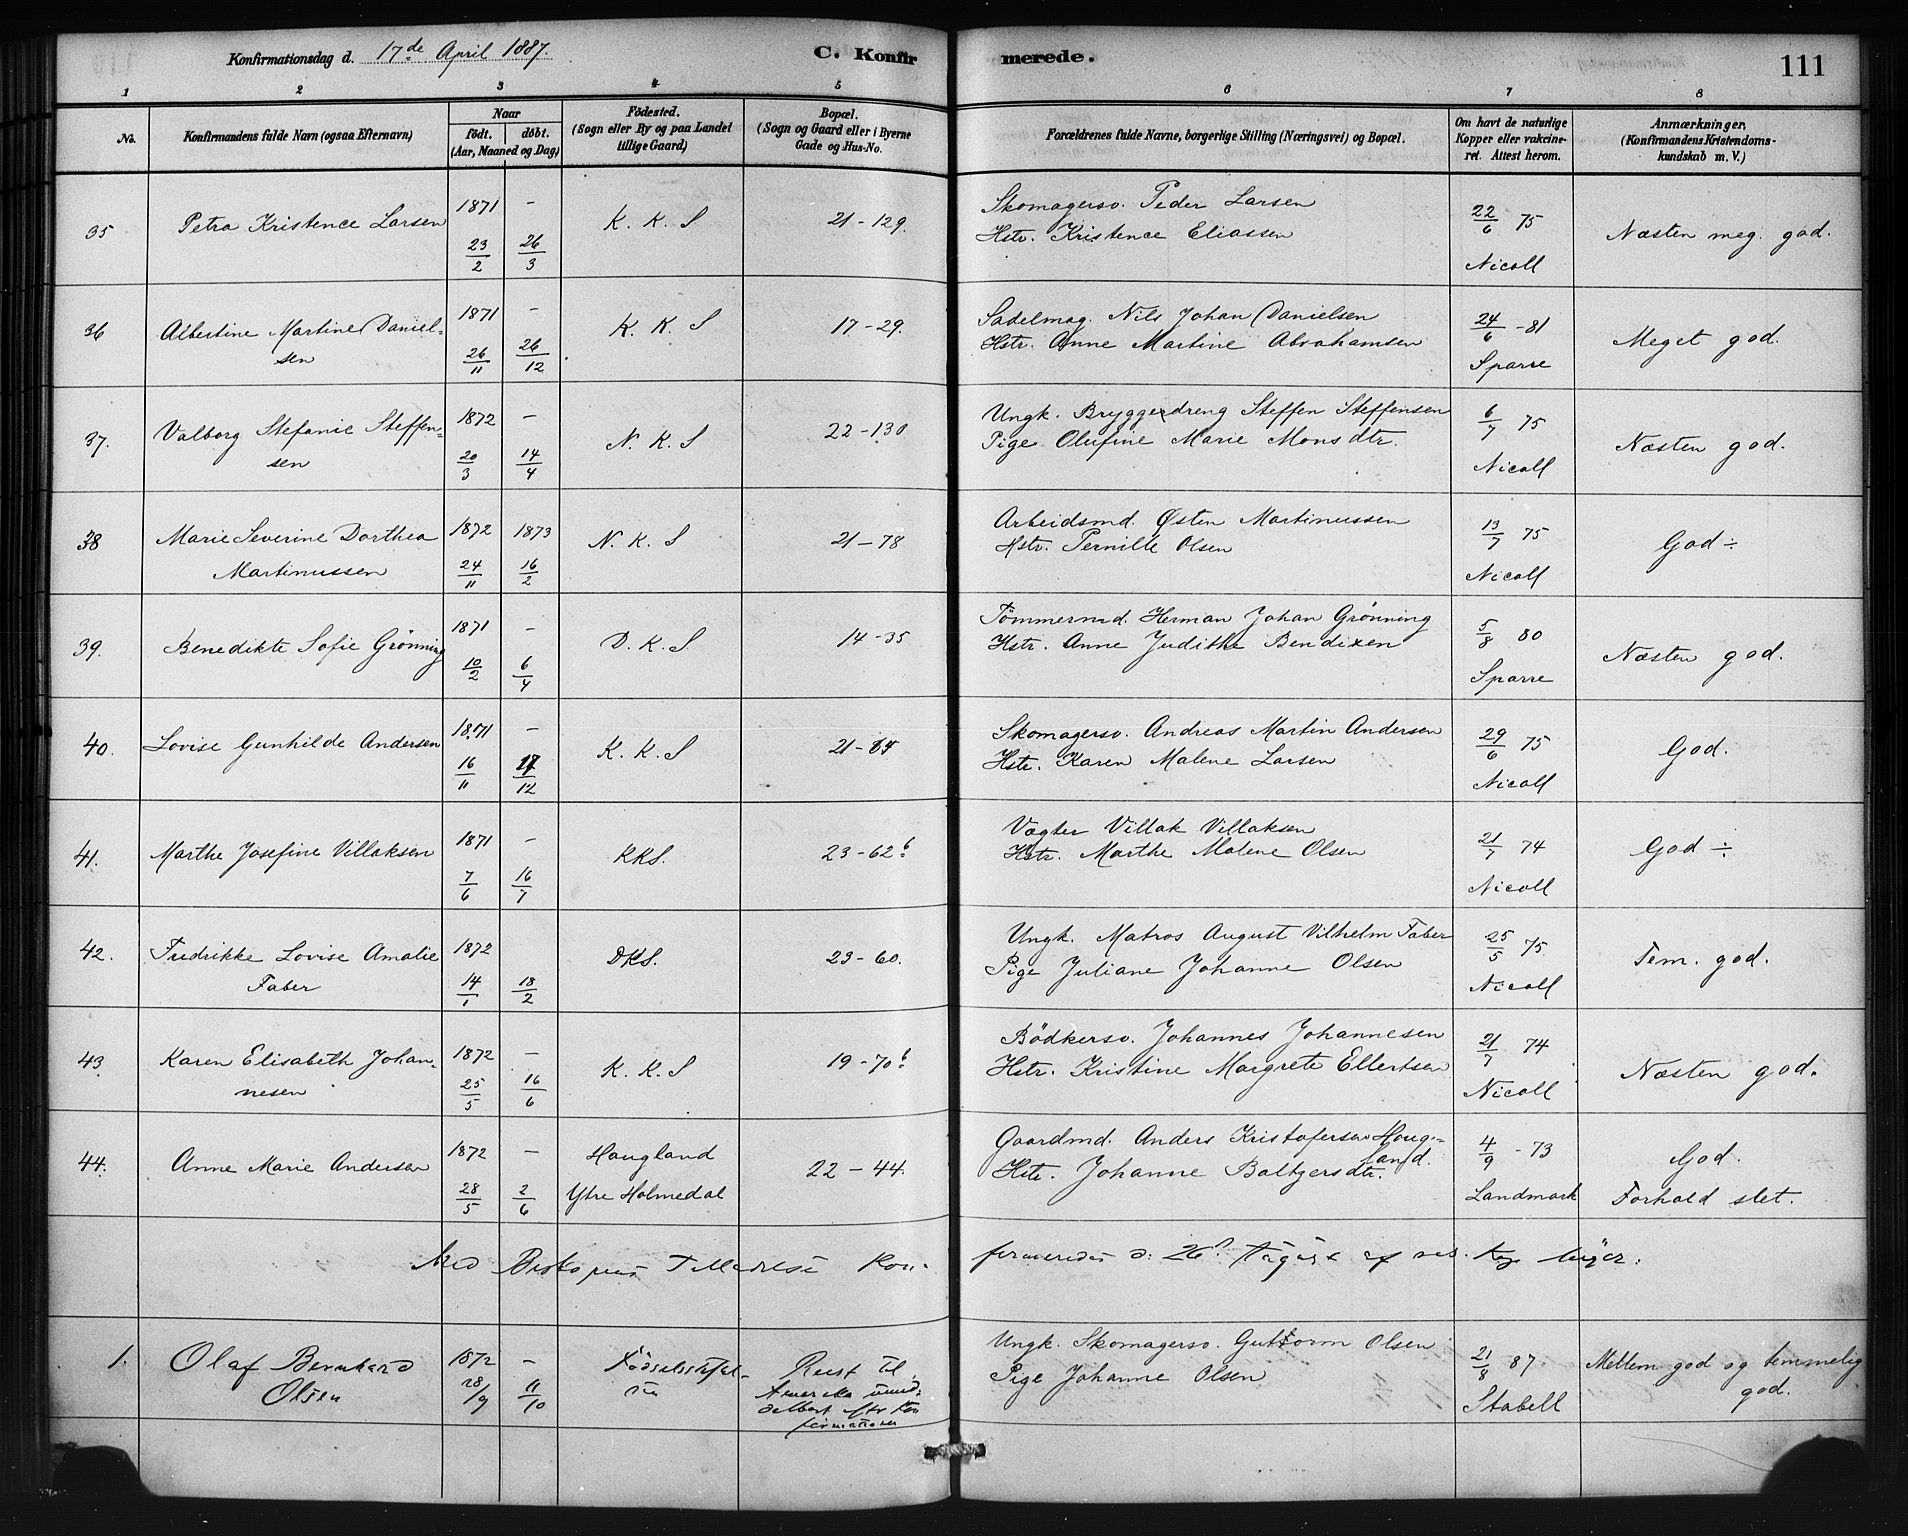 Konfirmationsdag d. 17de April 1887. C. Konfir merede. 111
1 2 3 4 5 6 7 8
No. Konfirmandens fulde Navn (ogsaa Efternavn) Naar født. døbt. (Aar, Maaned og Dag) Fødested. (Sogn eller By og paa Landet tillige Gaard) Bopæl. (Sogn og Gaard eller i Byerne Gade og Hus-No. Forældrenes fulde Navne, borgerlige Stilling (Næringsvei) og Bopæl. Om havt de naturlige Kopper eller vakcineret. Attest herom. Anmærkninger, (Konfirmandens Kristendomskundskab m. V.)
35 Petra Kristence Larsen 1871 23/2 – 26/3 K. K. S 21-129. Skomagersv. Peder Larsen
Hstr. Kristence Eliassen 22/6 75 Nicoll Næsten meg. god.
36 Albertine Martine Daniel-
sen 1871 26/11 – 26/12 K. K. S 17-29. Sadelmag. Nils Johan Danielsen
Hstr. Anne Martine Abrahamsen 24/6 -81 Sparre Meget god.
37. Valborg Stefanie Steffen-
sen 1872 20/3 – 14/4 N. K. S 22-130 Ungk. Bryggerdreng Steffen Steffensen
Pige Olufine Marie Monsdtr. 6/7 75 Nicoll Næsten god.
38 Marie Severine Dorthea
Martinussen 1872 24/11 1873 16/2 N. K. S 21-78 Arbeidsmd. Østen Martinussen
Hstr. Pernille Olsen 13/7 75 Nicoll God ÷
39. Benedikte Sofie Grønning 1871 10/2 – 6/4 D. K. S 14-35 Tømmermd. Herman Johan Grønning
Hstr. Anne Judithe Bendixen 5/8 80 Sparre Næsten god.
40. Lovise Gunhilde Andersen 1871 16/11 – 17/12 K. K. S 21- Skomagersv. Andreas Martin Andersen
Hstr. Karen Malene Larsen 29/6 75 Nicoll God.
41. Marthe Josefine Villaksen 1871 7/6 – 16/7 KKS. 23-62b Vægter Villak Villaksen
Hstr. Marthe Malene Olsen 21/7 74 Nicoll God ÷
42. Fredrikke Lovise Amalie
Faber 1872 14/1 18/2 DKS. 23-60. Ungk. Matros August Vilhelm Faber
Pige Juliane Johanne Olsen 25/5 75 Nicoll Tem. god.
43. Karen Elisabeth Johan-
nesen 1872 25/5 – 16/6 K. K. S 19-70b Bødkersv. Johannes Johannesen
Hstr. Kristine Margrete Ellertsen 21/7 74 Nicoll Næsten god.
44. Anne Marie Andersen 1872 28/5 – 2/6 Haugland
Ytre Holmedal 22-44. Gaardmd. Anders Kristofersen Haug-
land.
Hstr. Johanne Baltzersdtr. 4/9 -73 Landmark God.
Forhold slet.
Med Biskopens Tilladelse kon- firmeredes d. 26 August af res. Kap
1. Olaf Bernhard
Olsen 1872 28/9 – 11/10 Fødselsstiftel-
sen Reist til
Amerika umid-
delbart efter Kon
firmationen Ungk. Skomagersv. Guttorm Olsen
Pige Johanne Olsen 21/8 87 Stabell Mellem god og temmelig
god.